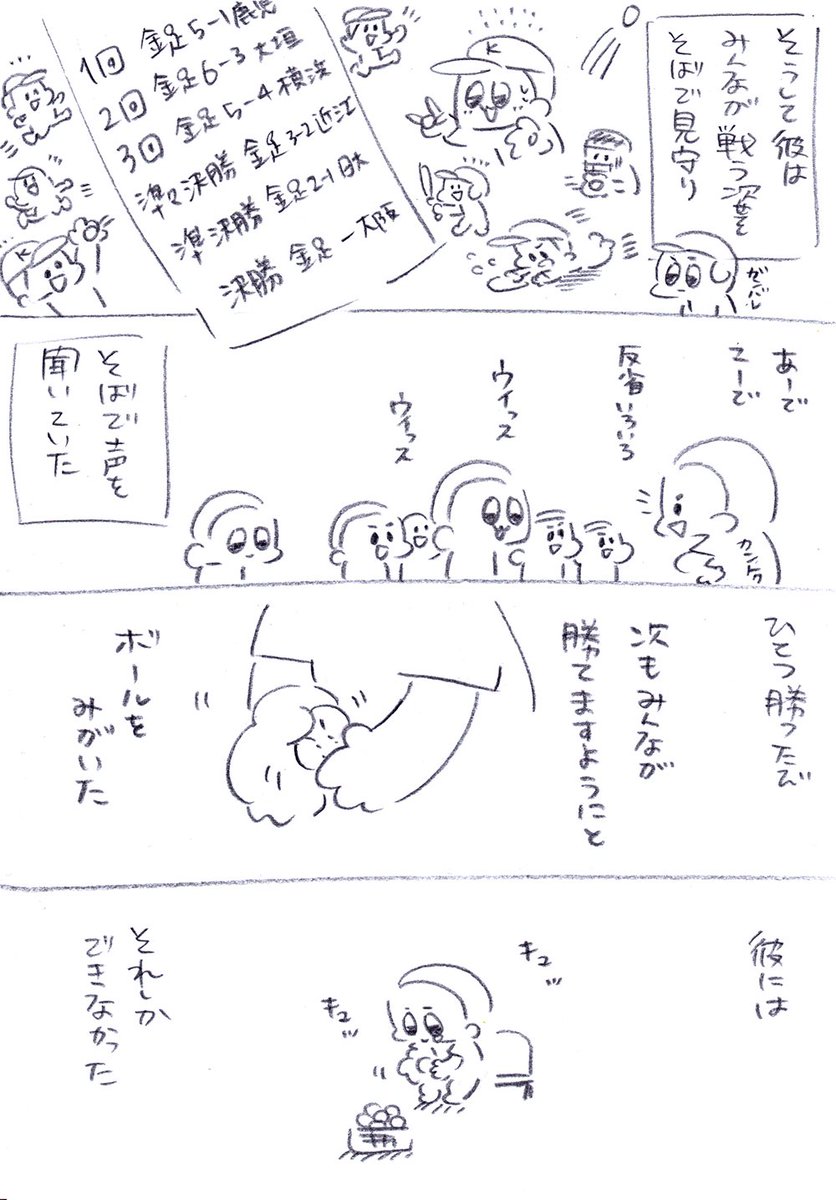 そうして彼は
みんなが戦う姿を
そばで見守り
ガンバレ
K
1回 金足5-1鹿児
2回 金足6-3大垣
3回 金足5-4横浜
準々決勝 金足3-2近江
準決勝 金足2-1日大
決勝 金足ー大阪
K
あーで
こーで
反省いろいろ
ウイっス
ウイっス
カントク
そばで声を
聞いていた
ひとつ勝つたび
次もみんなが
勝てますようにと
ボールを
みがいた
彼には
キュッ
キュッ
それしか
できなかった